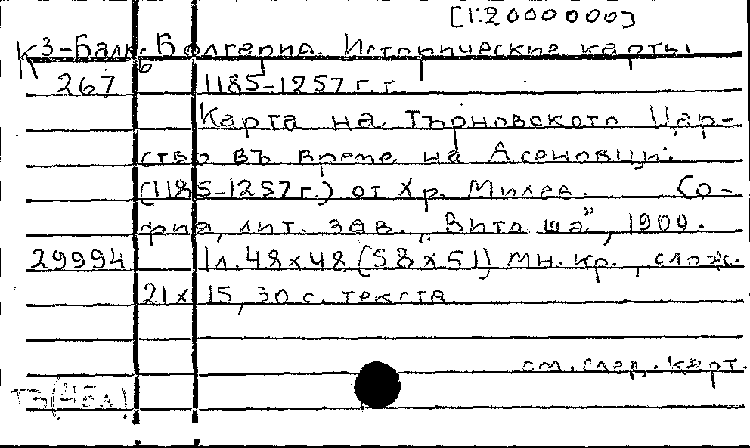 [1:2000000]
К3-Балк. Болгария. Исторические карты
267 1185-1257 г.г.
Карта на Търновското Цар-
ство въ време на Асеновци:
(1185-1257 г.) от Хр. Милев. Со-
фия, лит. зав. „Витоша”, 1909.
29994 1 л. 48х48 (58х51) мн. кр., слож.
21х15, 30 с. текста
см. след. карт.